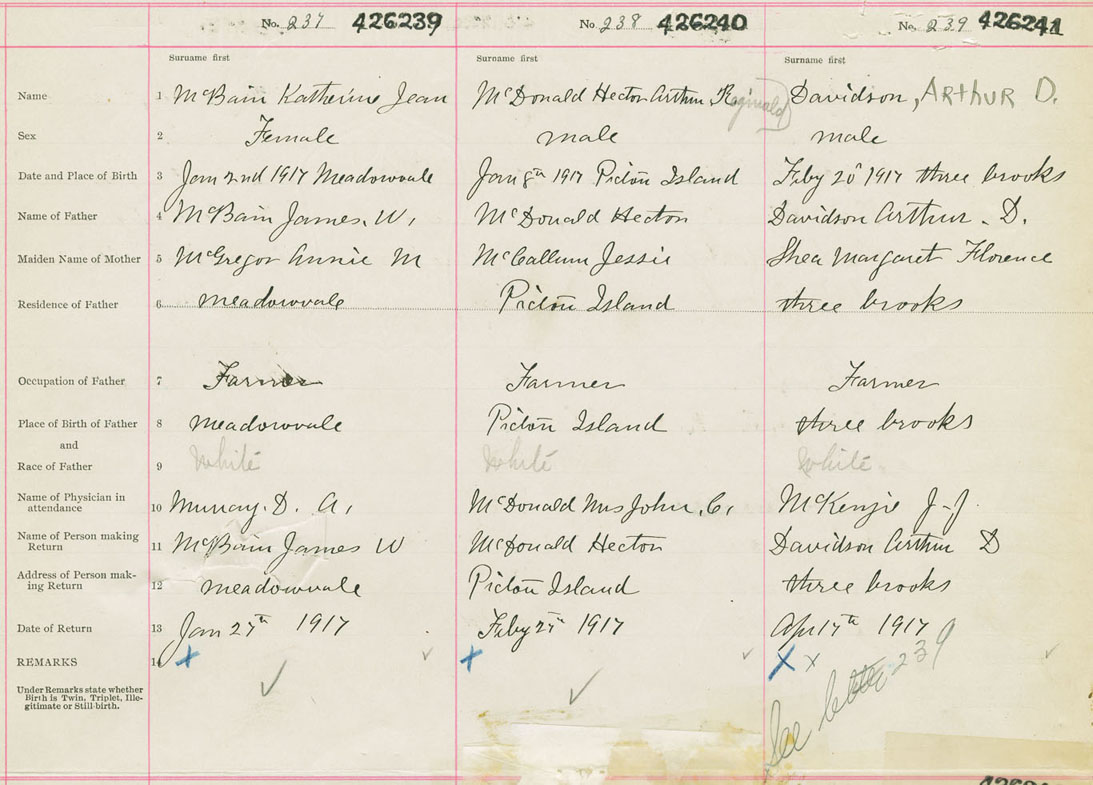 No. 237 426239 No 238 426240 No. 239 426241
Surname first Surname first Surname first
Name 1 McBain Katherine Jean McDonald Hector Arthur Reginald Davidson, ARTHUR D.
Sex 2 Female male male
Date and Place of Birth 3 Jan 2nd 1917 Meadowvale Jan 8th 1917 Pictou Island Feby 20 1917 three brooks
Name of Father 4 McBain James. W. McDonald Hector Davidson Arthur. D.
Maiden Name of Mother 5 McGregor Annie M McCallum Jessie Shea Margaret Florence
Residence of Father 6 meadowvale Pictou Island three brooks
Occupation of Father 7 Farmer Farmer Farmer
Place of Birth of Father 8 meadowvale Pictou Island three brooks
and
Race of Father 9 White White White
Name of Physician in
attendance 10 Murray. D. A. McDonald Mrs John. C. McKenzie J-J
Name of Person making
Return 11 McBain James W McDonald Hector Davidson Arthur D
Address of Person mak-
ing Return 12 meadowvale Pictou Island three brooks
Date of Return 13 Jan 27th 1917 Feby 27th 1917 Apr 17th 1917
REMARKS 14 x x x x
Under Remarks state whether
Birth is Twin, Triplet, Ille-
gitimate or Still-birth.
See letter 239